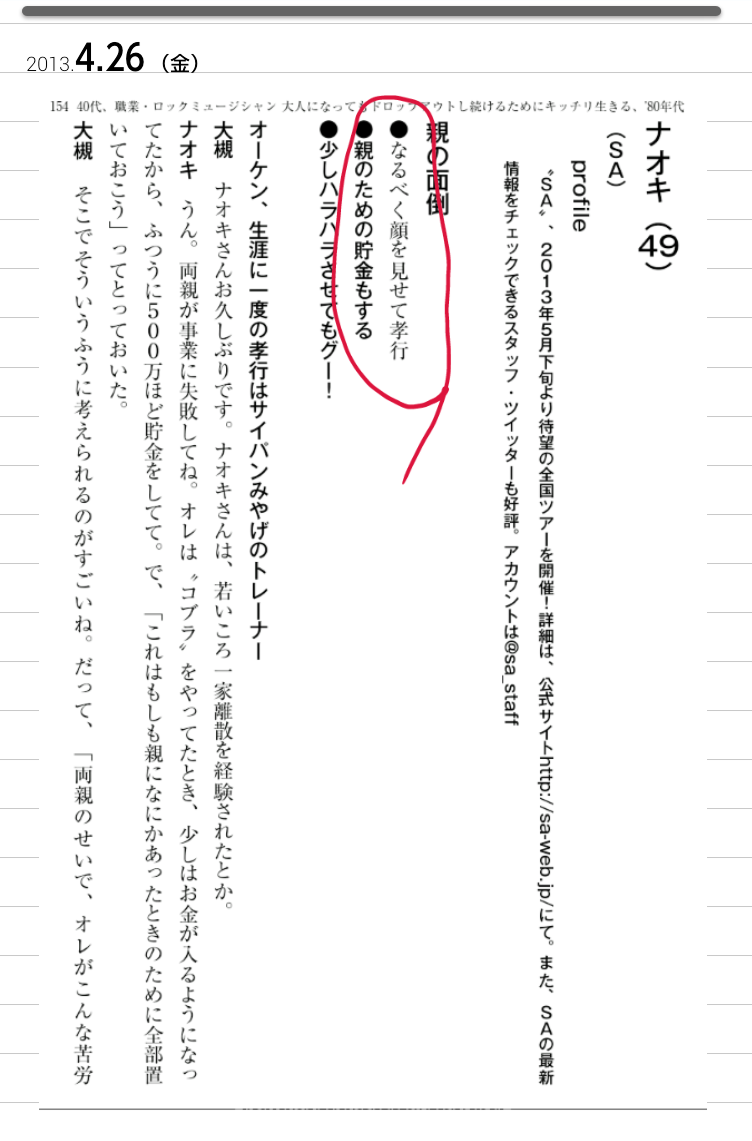 2013.4.26（金）
154 40代、職業・ロックミュージシャン 大人になってもドロップアウトし続けるためにキッチリ生きる、'80年代
ナオキ（49）
（SA）
profile
〝SA〟、2013年5月下旬より待望の全国ツアーを開催！詳細は、公式サイトhttp://sa-web.jp/にて。また、SAの最新
情報をチェックできるスタッフ・ツイッターも好評。アカウントは@sa_staff
親の面倒
●なるべく顔を見せて孝行
●親のための貯金もする
●少しハラハラさせてもグー！
オーケン、生涯に一度の孝行はサイパンみやげのトレーナー
大槻　ナオキさんお久しぶりです。ナオキさんは、若いころ一家離散を経験されたとか。
ナオキ　うん。両親が事業に失敗してね。オレは〝コブラ〟をやってたとき、少しはお金が入るようになっ
てたから、ふつうに500万ほど貯金をしてて。で、「これはもしも親になにかあったときのために全部置
いておこう」ってとっておいた。
大槻　そこでそういうふうに考えられるのがすごいね。だって、「両親のせいで、オレがこんな苦労